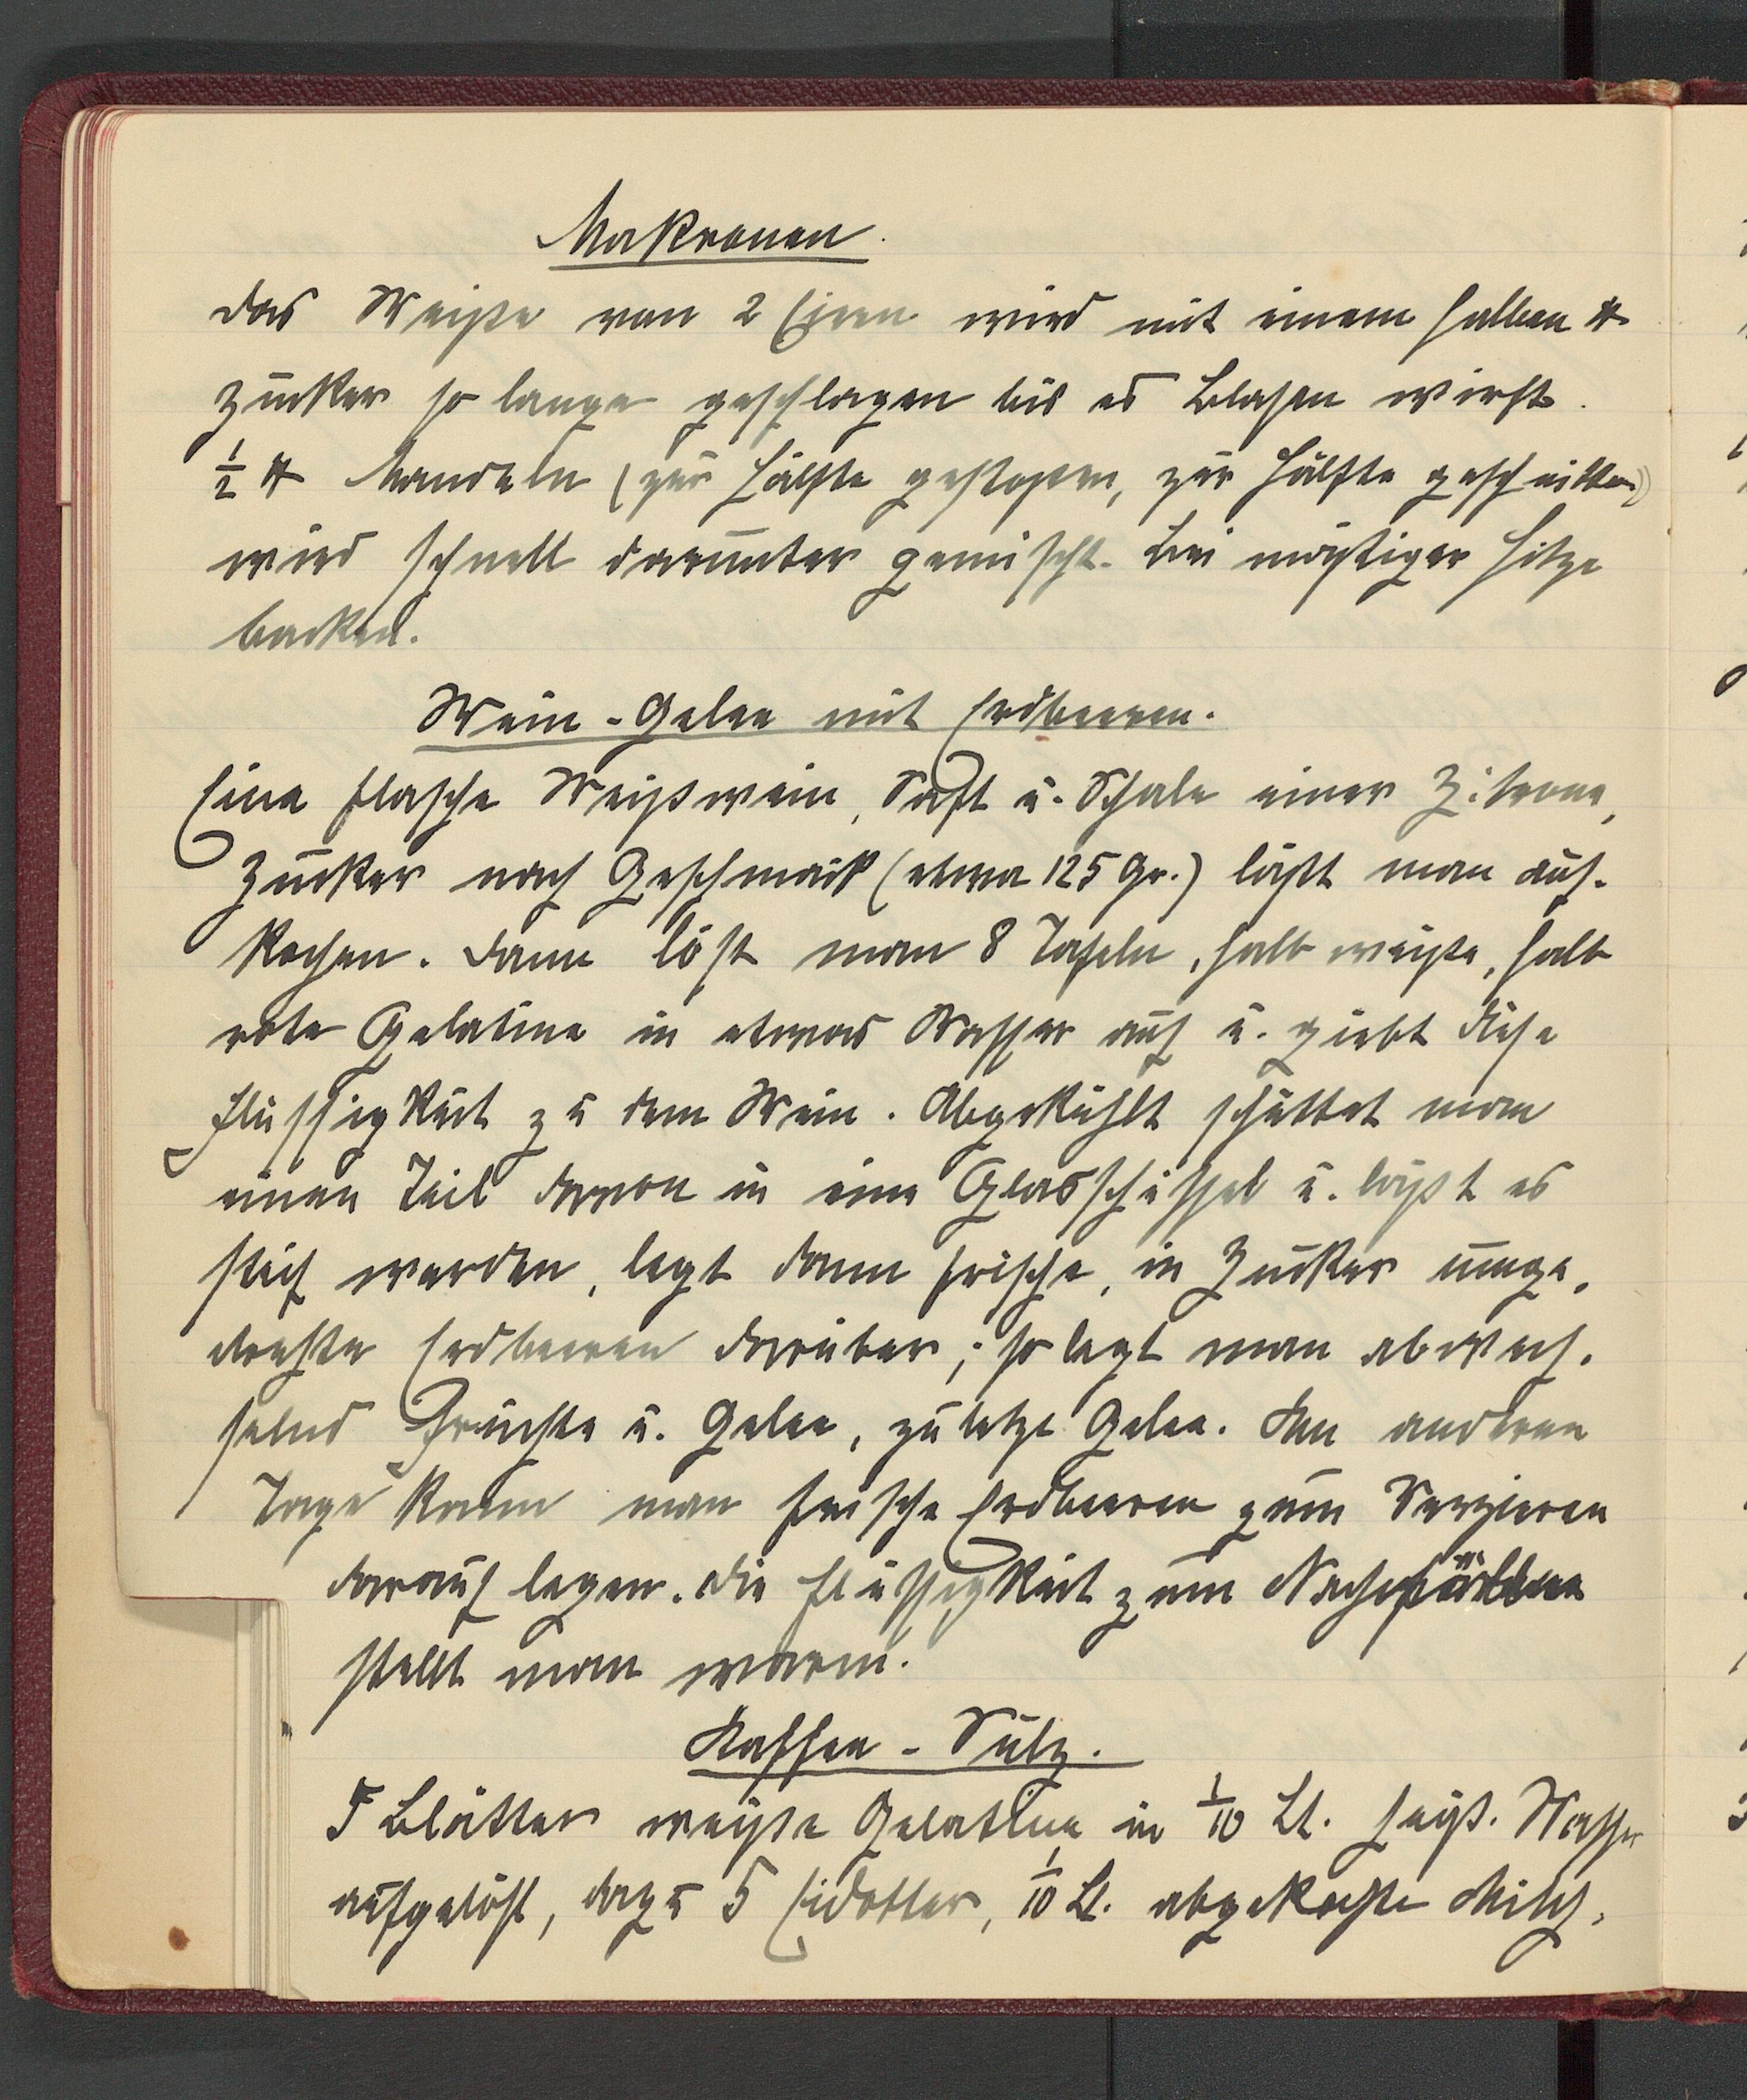 Makronen.
Das Weiße von 2 Eiern wird mit einem halben ℔
Zucker so lange geschlagen bis es Blasen wirft.
½ ℔ Mandeln (zur Hälfte gestoßen, zur Hälfte geschnitten)
wird schnell darunter gemischt. Bei mäßiger Hitze
backen.
Wein-Gelee mit Erdbeeren.
Eine Flasche Weißwein, Saft u. Schale einer Zitrone,
Zucker nach Geschmack (etwa 125 Gr.) läßt man auf-
kochen. Dann löst man 8 Tafeln, halb weiße, halb
rote Gelatine in etwas Wasser auf u. giebt diese
Flüssigkeit zu dem Wein. Abgekühlt schüttet man
einen Teil davon in eine Glasschüssel u. läßt es
steif werden, legt dann frische, in Zucker umge-
drehte Erdbeeren darüber; so legt man abwech-
selnd Früchte u. Gelee, zuletzt Gelee. Am anderen
Tage kann man frische Erdbeeren zum Verzieren
darauf legen. Die Flüssigkeit zum Nachfüllen
stellt man warm.
Kaffee-Sulz.
5 Blätter weiße Gelatine in 1/10 Lt. heiß. Wasser
aufgelöst, dazu 5 Eidotter, 1/10 Lt. abgekochte Milch,